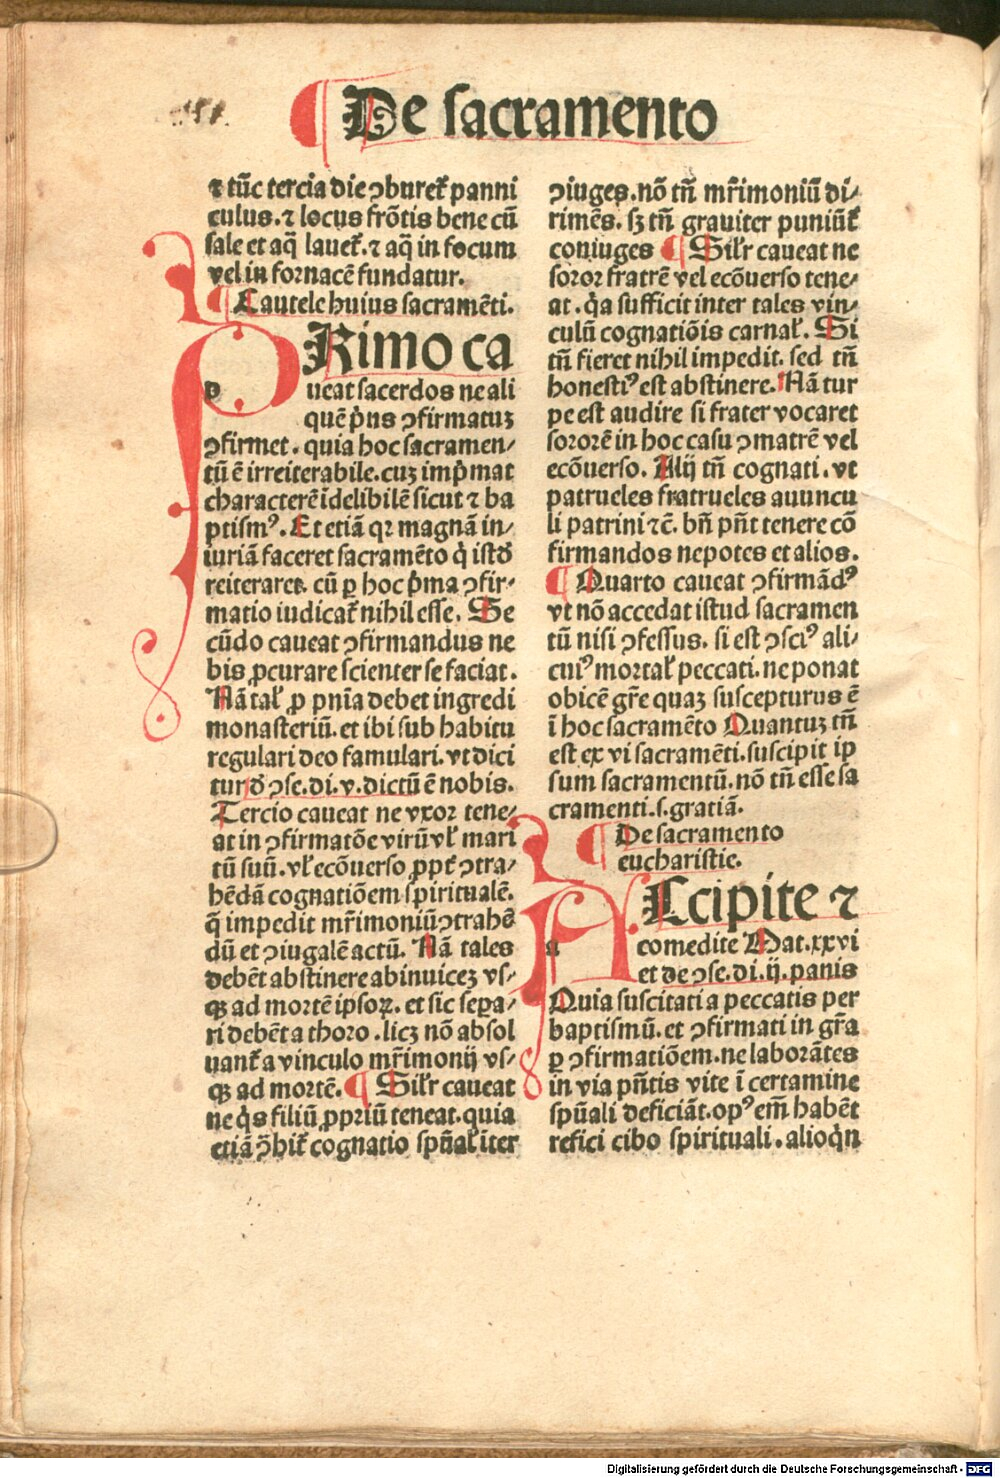 De sacramento
⁊ tūc tercia die ꝯburet᷑ panni
culus. ⁊ locus frōtis bene cū
sale et aq̄ lauet᷑. ⁊ aq̄ in focum
vel in fornacē fundatur.
Cautele huius sacramēti.
PRimo ca
ueat sacerdos ne ali
quē p̄ns ꝯfirmatuꝫ
ꝯfirmet. quia hoc sacramen⸗
tū ē irreiterabile. cuꝫ imp̄mat
characterē īdelibilē sicut ⁊ ba
ptismꝰ. Et etiā qꝛ magnā in⸗
iuriā faceret sacramēto q̇ istd̄
reiteraret. cū ꝑ hoc p̄ma ꝯfir⸗
matio iudicat᷑ nihil esse. Se
cūdo caueat ꝯfirmandus ne
bis ꝓcurare scienter se faciat.
Nā tal̕ ꝓ pn̄ia debet ingredi
monasteriū. et ibi sub habitu
regulari deo famulari. vt dici
tur d̄ ꝯse. di. v. dictū ē nobis.
Tercio caueat ne vxor tene⸗
at in ꝯfirmatōe virū vl̕ mari
tū suū. vl̕ ecōuerso ꝓpt̕ ꝯtra⸗
hēdā cognatiōem spiritualē.
q̄ impedit mr̄imoniū ꝯtrahē
dū et ꝯiugalē actū. Nā tales
debēt abstinere abinuiceꝫ vs⸗
qꝫ ad mortē ipsoꝝ. et sic sepa⸗
ri debēt a thoro. licꝫ nō absol
uant᷑ a vinculo mr̄imonij vs⸗
qꝫ ad mortē. Sil̕r caueat
ne q̇s filiū ꝓpriū teneat. quia
etiā ꝓhit᷑ cognatio spūal̕iter
ꝯiuges. nō tn̄ mr̄imoniū di⸗
rimēs. sꝫ tn̄ grauiter puniūt᷑
coniuges Sil̕r caueat ne
soror fratrē vel ecōuerso tene⸗
at. q̇a sufficit inter tales vin⸗
culū cognatiōis carnal̕. Si
tn̄ fieret nihil impedit. sed tn̄
honestiꝰ est abstinere. Nā tur
pe est audire si frater vocaret
sororē in hoc casu ꝯmatrē vel
ecōuerso. Alij tn̄ cognati. vt
patrueles fratrueles auuncu
li patrini ⁊c̄. bn̄ pn̄t tenere cō
firmandos nepotes et alios.
Quarto caueat ꝯfirmādꝰ
vt nō accedat istud sacramen
tū nisi ꝯfessus. si est ꝯsciꝰ ali⸗
cuiꝰ mortal̕ peccati. ne ponat
obicē gr̄e quaꝫ suscepturus ē
ī hoc sacramēto Quantuꝫ tn̄
est ex vi sacramēti. suscipit ip
sum sacramentū. nō tn̄ esse sa
cramenti. s. gratiā.
De sacramento
eucharistie.
ACcipite ⁊
comedite Mat. xxvi
et de ꝯse. di. ij. panis
Quia suscitati a peccatis per
baptismū. et ꝯfirmati in gr̄a
ꝑ ꝯfirmatiōem. ne laborātes
in via pn̄tis vite ī certamine
spūali deficiāt. opꝰ em̄ habēt
refici cibo spirituali. alioq̇n
Digitalisierung gefördert durch die Deutsche Forschungsgemeinschaft - DFG